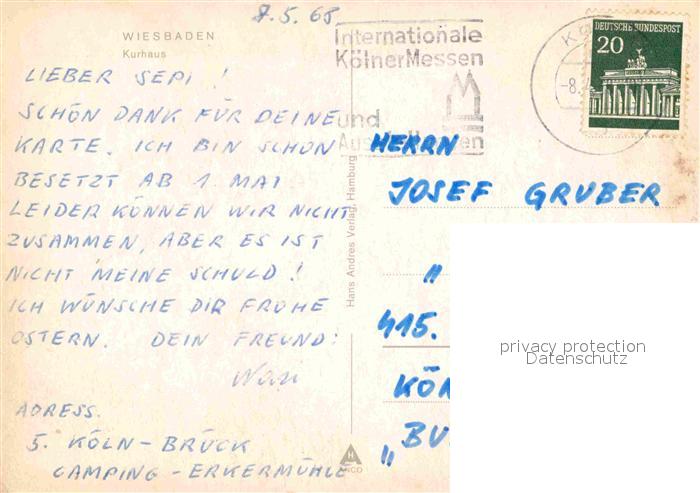 7.5.68
WIESBADEN
Kurhaus
LIEBER SEPI !
SCHÖN DANK FÜR DEINE
KARTE. ICH BIN SCHON
BESETZT AB 1. MAI
LEIDER KÖNNEN WIR NICHT
ZUSAMMEN, ABER ES IST
NICHT MEINE SCHULD !
ICH WÜNSCHE DIR FROHE
OSTERN. DEIN FREUND:
ADRESS.
5. KÖLN-BRÜCK
CAMPING-ERKERMÜHLE
Hans Andres Verlag, Hamburg
Internationale
KölnerMessen
und
DEUTSCHE BUNDESPOST
20
-8.
HERRN
JOSEF GRUBER
"
415.
"
privacy protection
Datenschutz